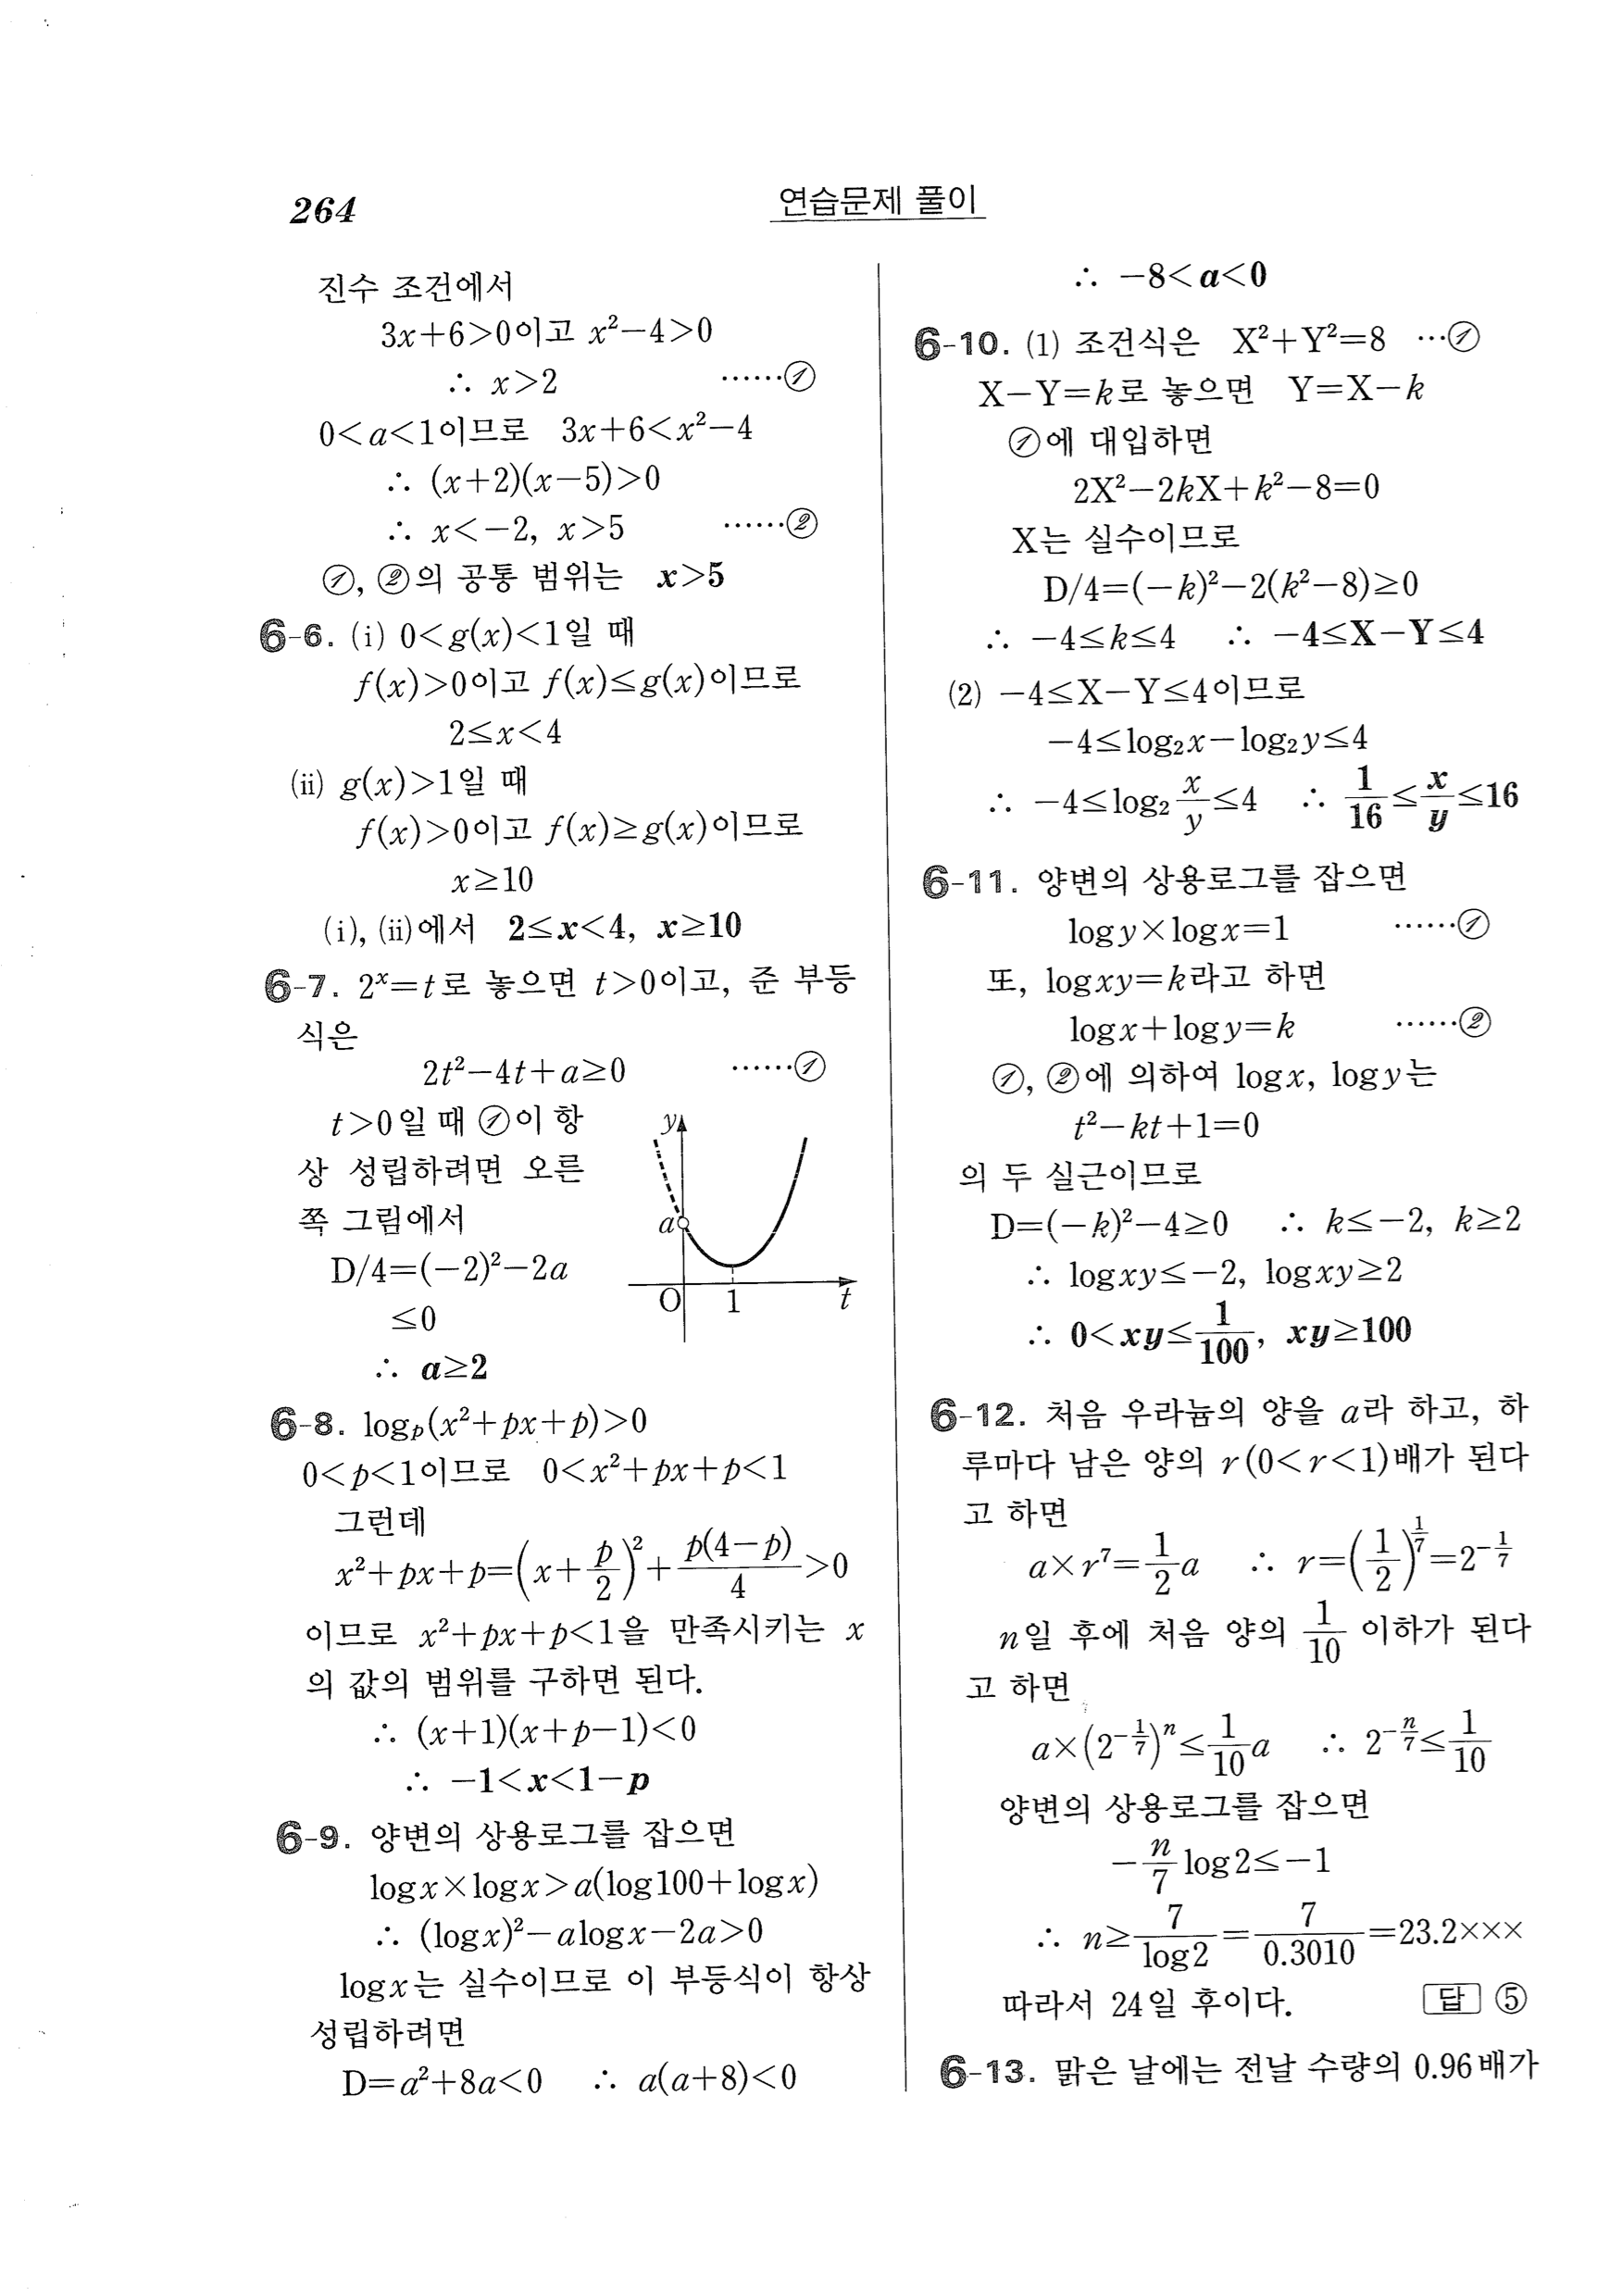 264
연습문제 풀이
진수 조건에서
3x+6>0이고 x²−4>0
∴ x>2 ······①
0<a<1이므로 3x+6<x²−4
∴ (x+2)(x−5)>0
∴ x<−2, x>5 ······②
①, ②의 공통 범위는 x>5
6-6. (i) 0<g(x)<1일 때
f(x)>0이고 f(x)≤g(x)이므로
2≤x<4
(ii) g(x)>1일 때
f(x)>0이고 f(x)≥g(x)이므로
x≥10
(i), (ii)에서 2≤x<4, x≥10
6-7. 2ˣ=t로 놓으면 t>0이고, 준 부등
식은
2t²−4t+a≥0 ······①
t>0일 때 ①이 항
상 성립하려면 오른
쪽 그림에서
D/4=(−2)²−2a
≤0
∴ a≥2
y
a
O 1 t
6-8. logₚ(x²+px+p)>0
0<p<1이므로 0<x²+px+p<1
그런데
x²+px+p=(x+p/2)²+p(4−p)/4>0
이므로 x²+px+p<1을 만족시키는 x
의 값의 범위를 구하면 된다.
∴ (x+1)(x+p−1)<0
∴ −1<x<1−p
6-9. 양변의 상용로그를 잡으면
logx×logx>a(log100+logx)
∴ (logx)²−alogx−2a>0
logx는 실수이므로 이 부등식이 항상
성립하려면
D=a²+8a<0 ∴ a(a+8)<0
∴ −8<a<0
6-10. (1) 조건식은 X²+Y²=8 ···①
X−Y=k로 놓으면 Y=X−k
①에 대입하면
2X²−2kX+k²−8=0
X는 실수이므로
D/4=(−k)²−2(k²−8)≥0
∴ −4≤k≤4 ∴ −4≤X−Y≤4
(2) −4≤X−Y≤4이므로
−4≤log₂x−log₂y≤4
∴ −4≤log₂ x/y≤4 ∴ 1/16≤x/y≤16
6-11. 양변의 상용로그를 잡으면
logy×logx=1 ······①
또, logxy=k라고 하면
logx+logy=k ······②
①, ②에 의하여 logx, logy는
t²−kt+1=0
의 두 실근이므로
D=(−k)²−4≥0 ∴ k≤−2, k≥2
∴ logxy≤−2, logxy≥2
∴ 0<xy≤1/100, xy≥100
6-12. 처음 우라늄의 양을 a라 하고, 하
루마다 남은 양의 r(0<r<1)배가 된다
고 하면
a×r⁷=1/2 a ∴ r=(1/2)^(1/7)=2^(−1/7)
n일 후에 처음 양의 1/10 이하가 된다
고 하면
a×(2^(−1/7))ⁿ≤1/10 a ∴ 2^(−n/7)≤1/10
양변의 상용로그를 잡으면
−n/7 log2≤−1
∴ n≥7/log2=7/0.3010=23.2×××
따라서 24일 후이다. 답 ⑤
6-13. 맑은 날에는 전날 수량의 0.96배가